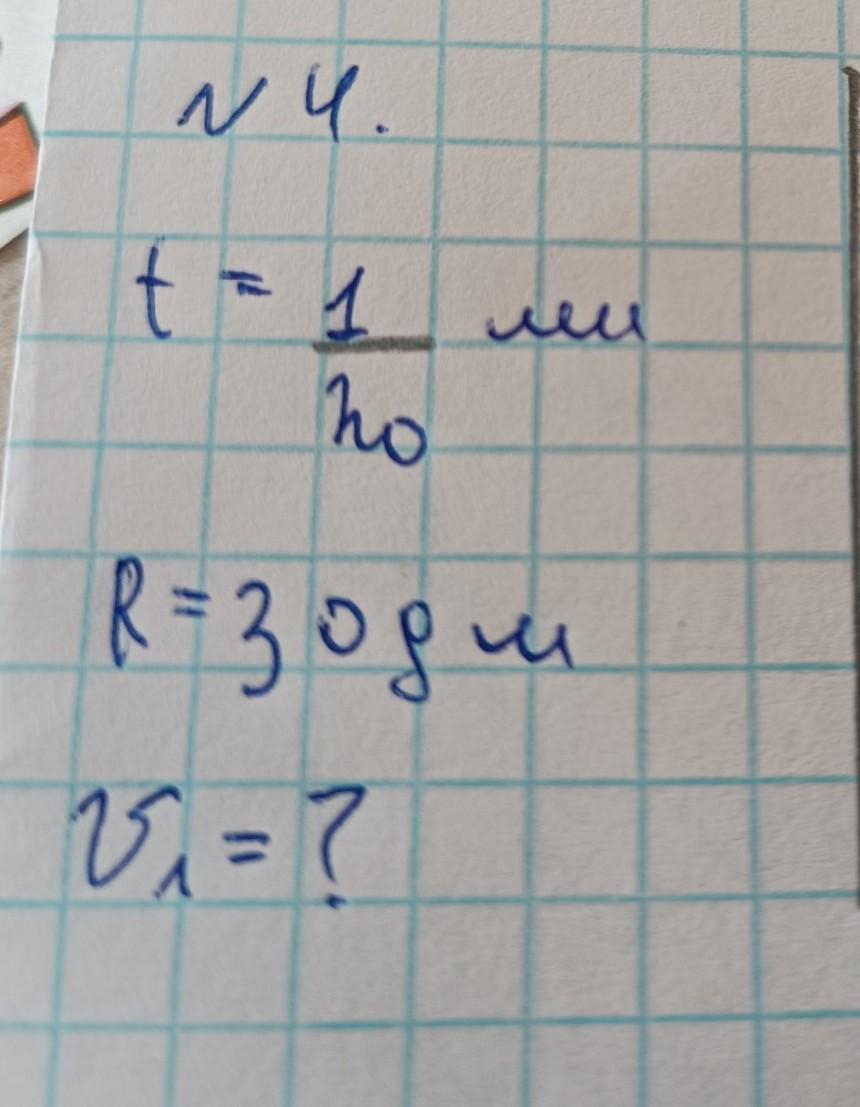 N 4.
t = 1/20 ми
R = 30 дм
v₁ = ?